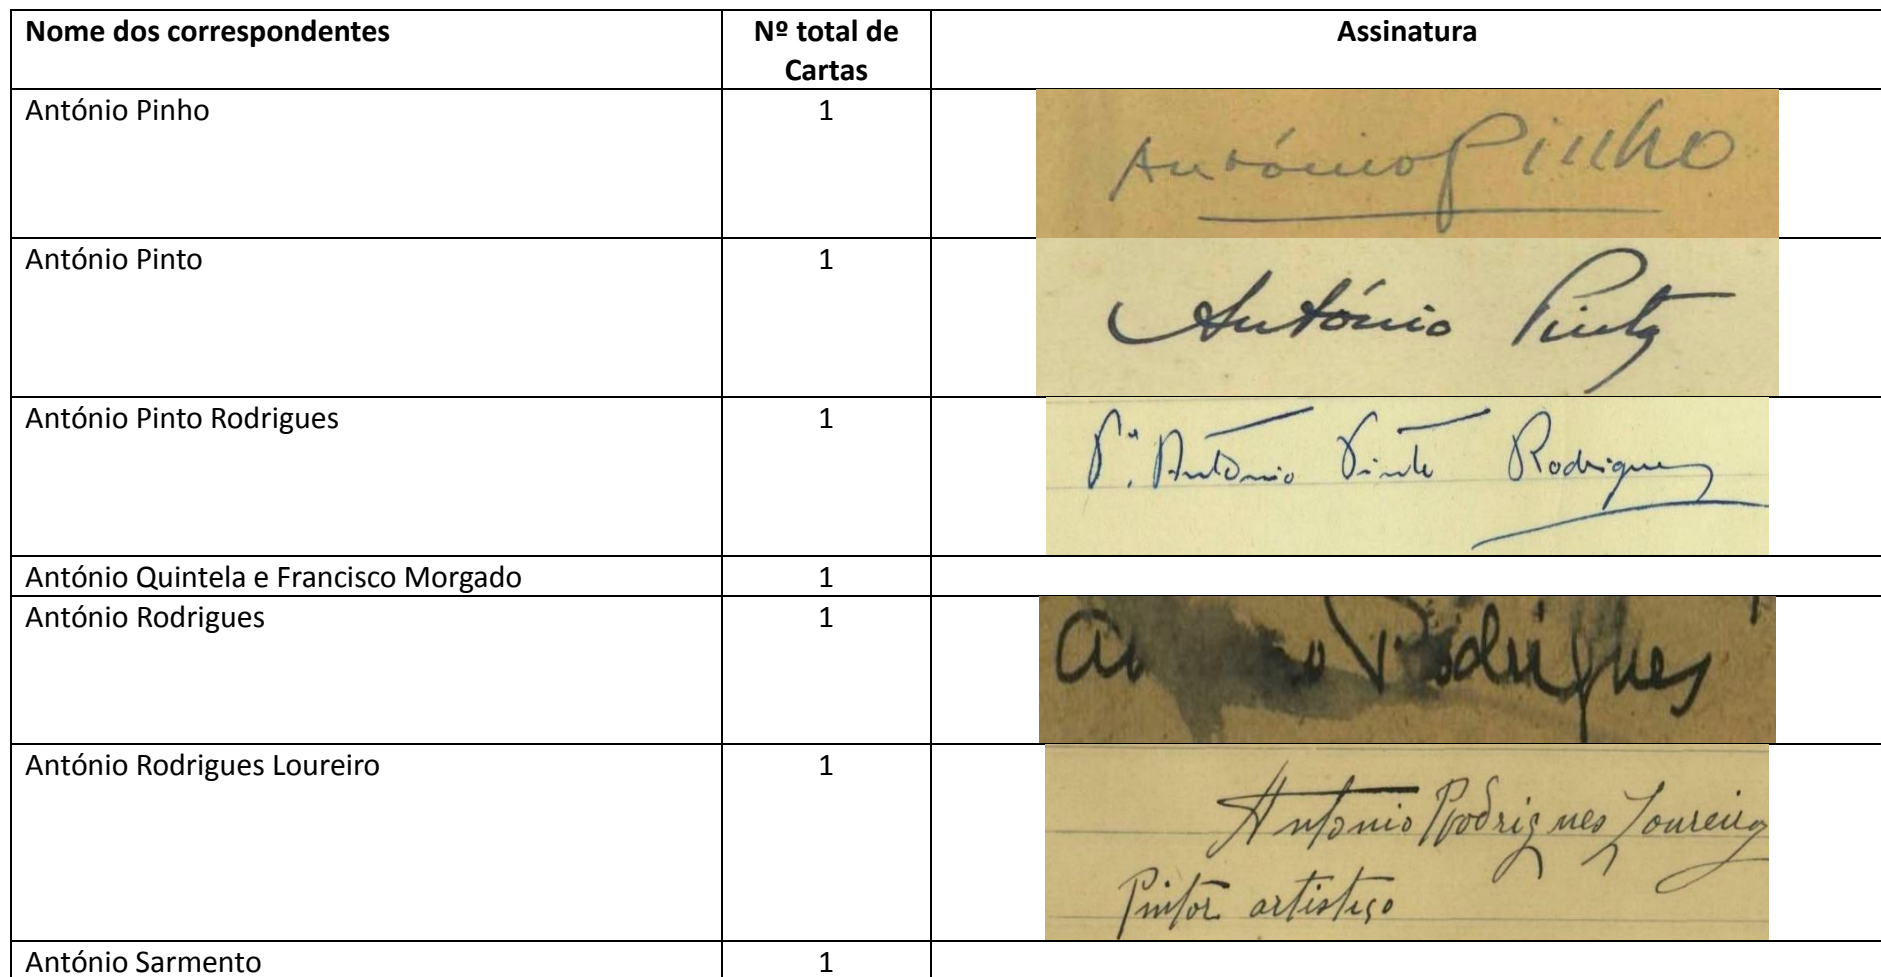 Nome dos correspondentes
Nº total de
Cartas
Assinatura
António Pinho
1
António Pinho
António Pinto
1
António Pinto
António Pinto Rodrigues
1
P.e António Pinto Rodrigues
António Quintela e Francisco Morgado
1
António Rodrigues
1
Rodrigues
António Rodrigues Loureiro
1
Antonio Rodrigues Loureiro
Pintor artistiço
António Sarmento
1